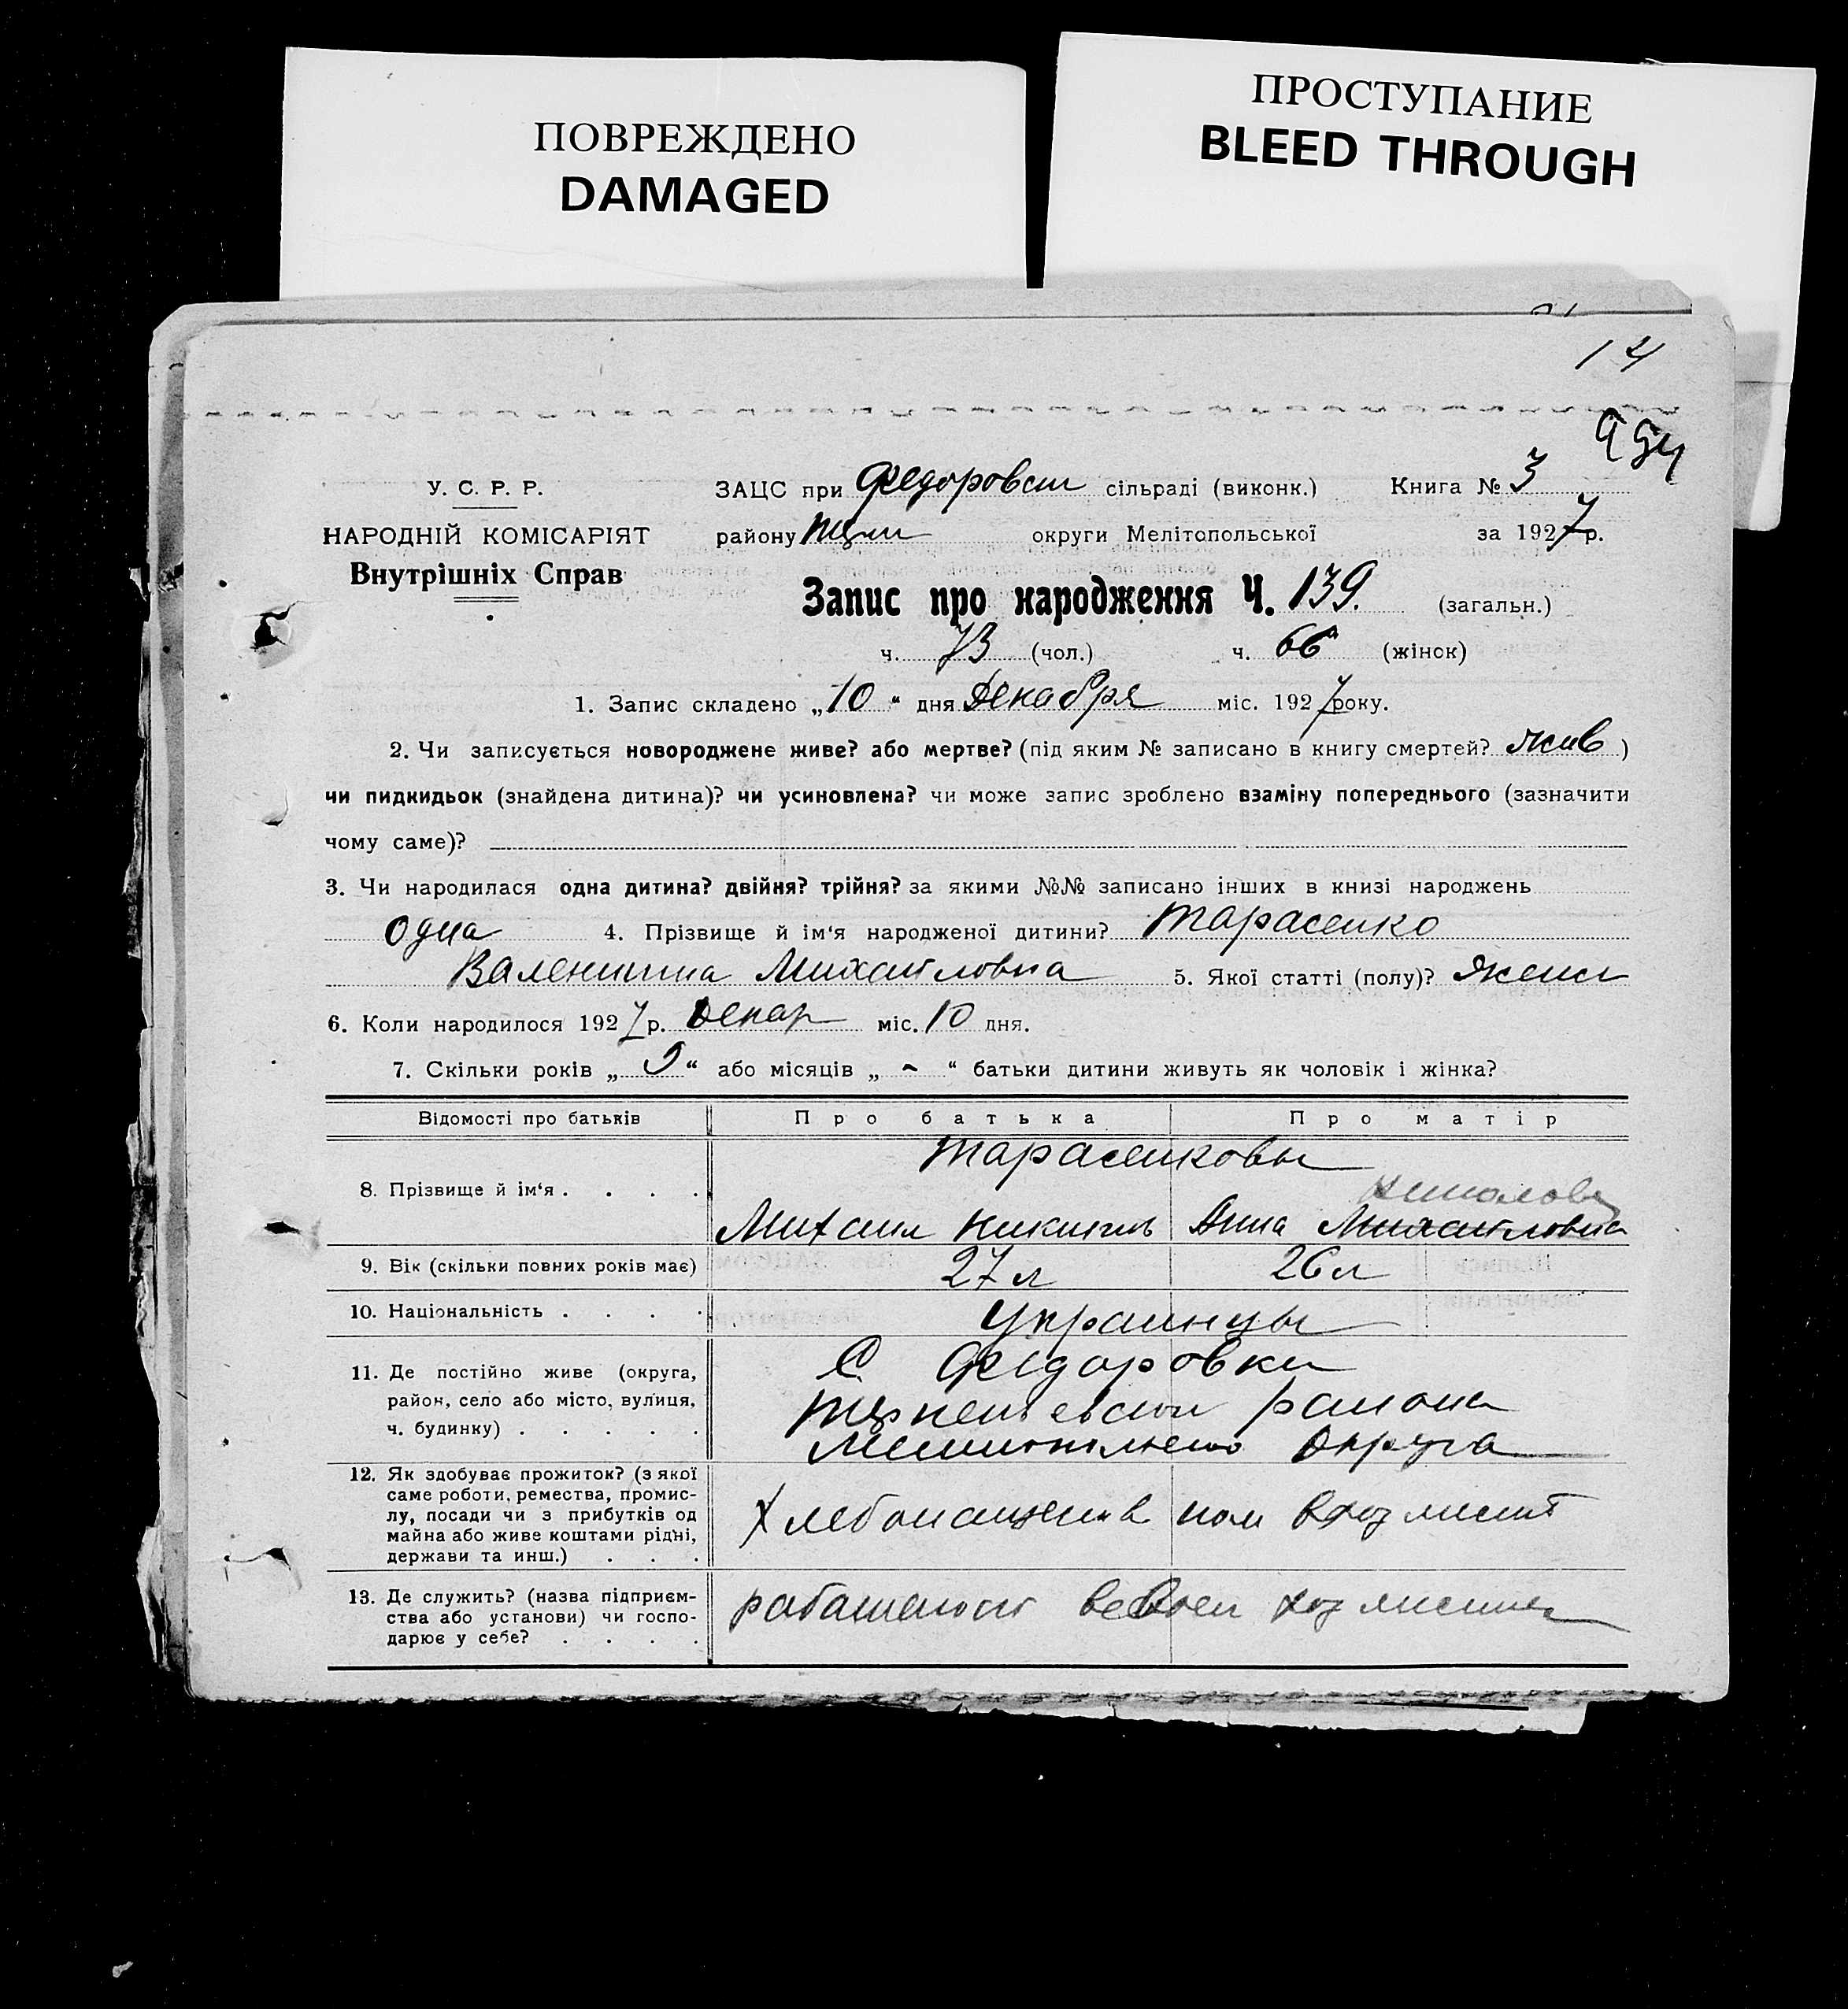 ПОВРЕЖДЕНО
DAMAGED
ПРОСТУПАНИЕ
BLEED THROUGH
14
У. С. Р. Р.
НАРОДНІЙ КОМІСАРІЯТ
Внутрішніх Справ
ЗАЦС при Федоровском сільраді (виконк.) Книга № 3
району округи Мелітопольської за 1927 р.
Запис про народження Ч. 139. (загальн.)
ч. 73 (чол.) ч. 66 (жінок)
1. Запис складено „10“ дня Декабря міс. 1927 року.
2. Чи записується новороджене живе? або мертве? (під яким № записано в книгу смертей? жив )
чи пидкидьок (знайдена дитина)? чи усиновлена? чи може запис зроблено взаміну попереднього (зазначити
чому саме)?
3. Чи народилася одна дитина? двійня? трійня? за якими №№ записано інших в книзі народжень
одна 4. Прізвище й ім'я народженої дитини? Тарасенко
Валентина Михайловна 5. Якої статті (полу)? женск
6. Коли народилося 1927 р. Декар міс. 10 дня.
7. Скільки років „ 9 “ або місяців „ ~ “ батьки дитини живуть як чоловік і жінка?
Відомості про батьків Про батька Про матір
Тарасенковы
8. Прізвище й ім'я . . . .
Михаил Никитич Анна Михайловна
9. Вік (скільки повних років має) 27 л 26 л
10. Національність . . . . Украинцы
11. Де постійно живе (округа, район, село або місто, вулиця, ч. будинку) . . . . .
С Федоровки
района
округа
12. Як здобуває прожиток? (з якої саме роботи, ремества, промислу, посади чи з прибутків од майна або живе коштами рідні, держави та инш.) . . .
13. Де служить? (назва підприємства або установи) чи господарює у себе? . . . .